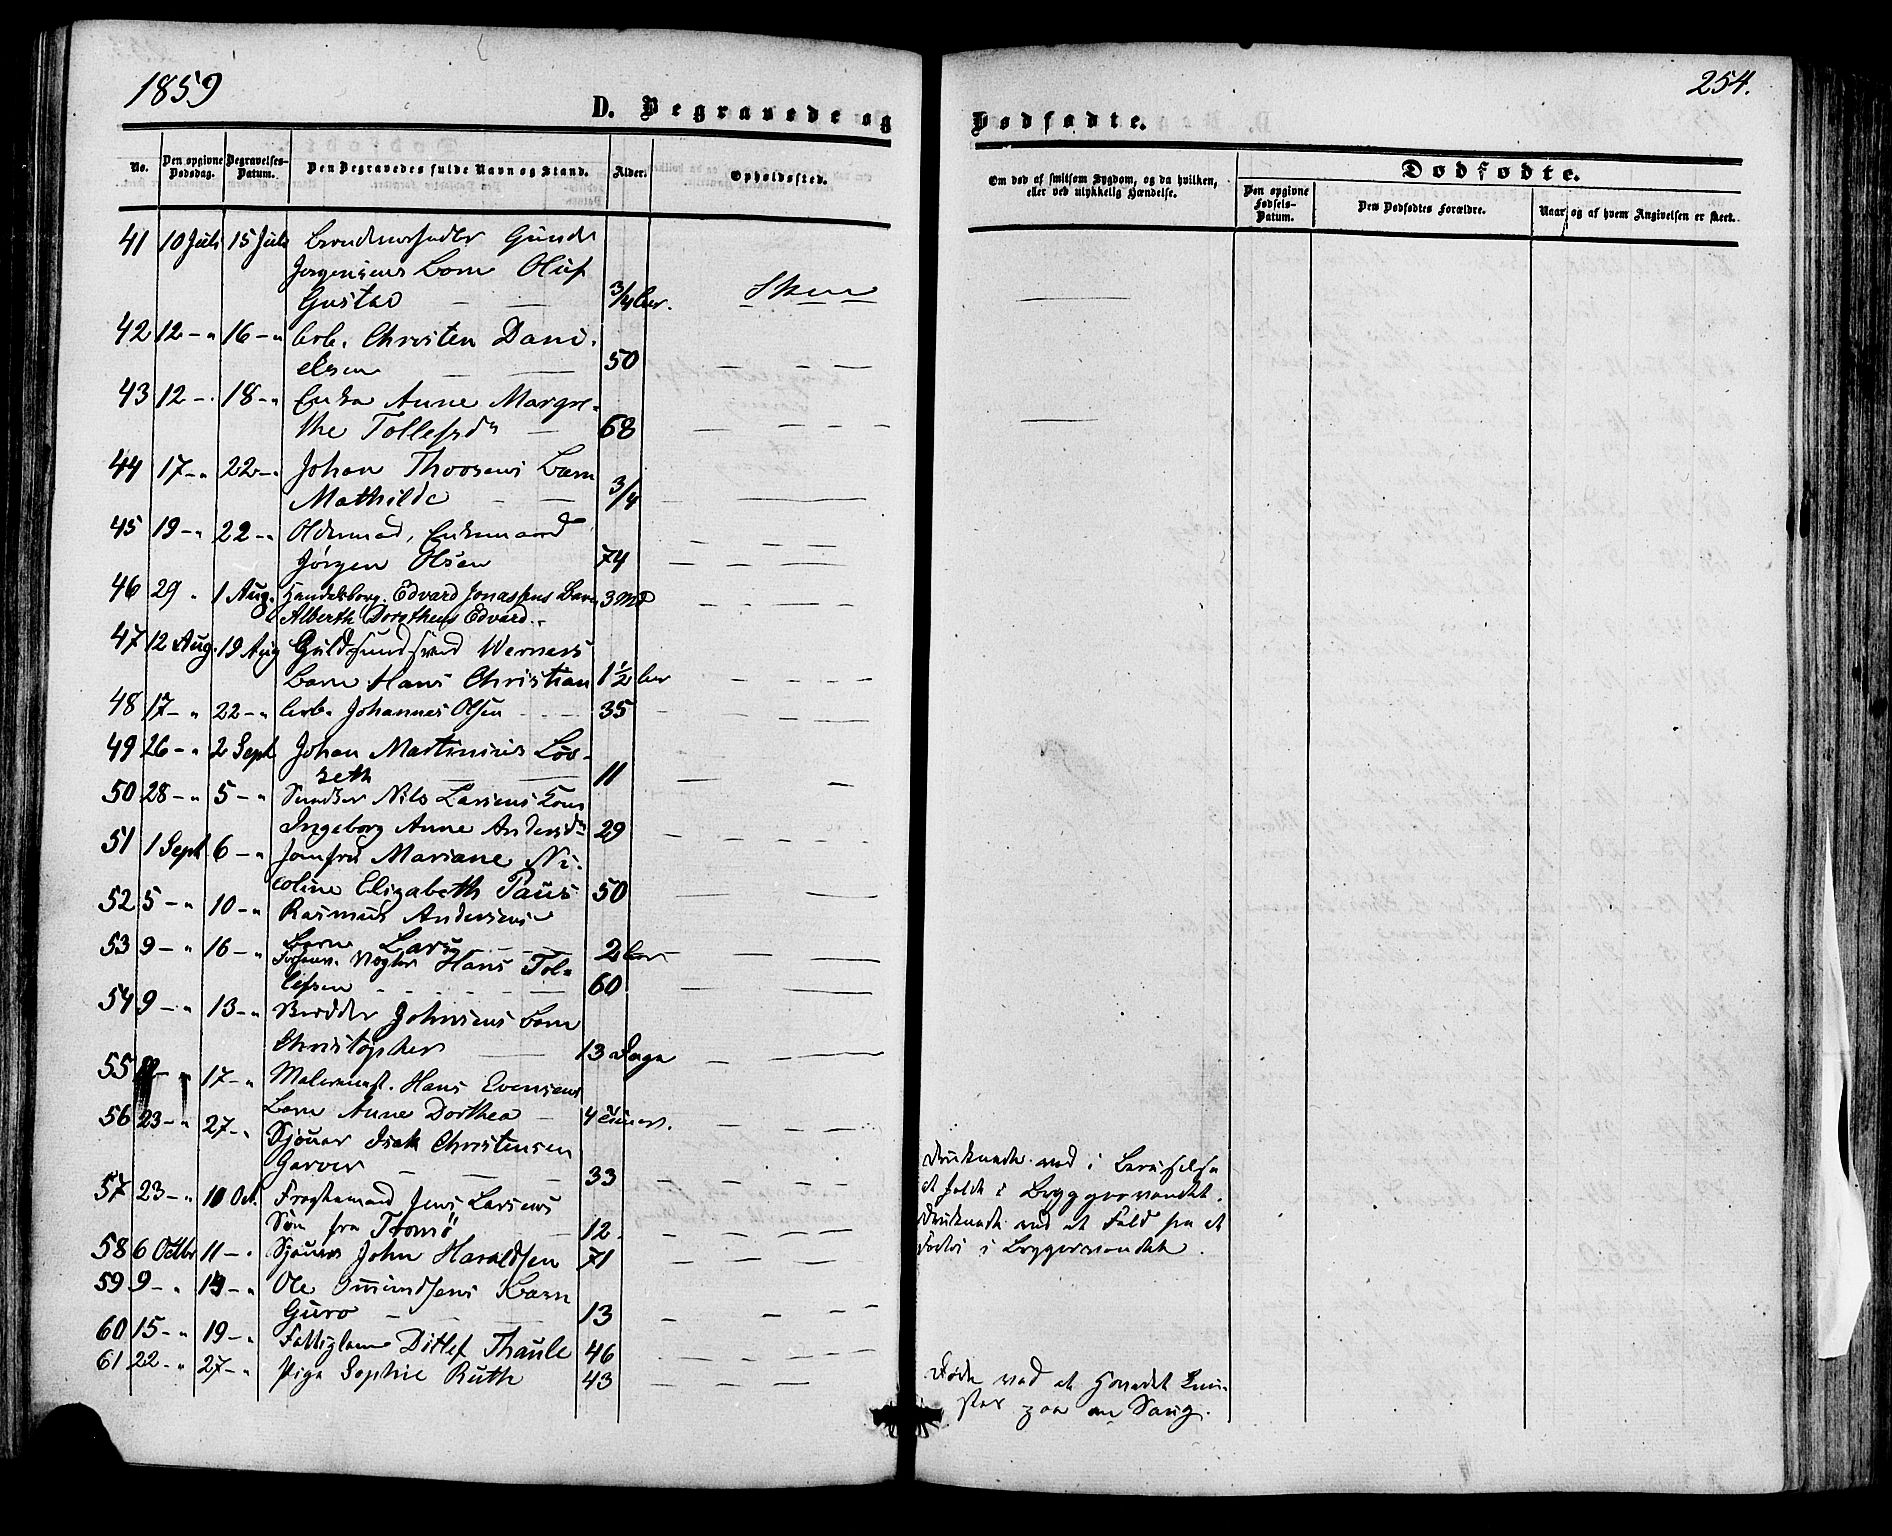 1859
254.
D. Begravede og Dødfødte.
No.
Den opgivne Dødsdag.
Begravelses-Datum.
Den Begravedes fulde Navn og Stand.
Alder.
Opholdssted.
Om død af smitsom Sygdom, og da hvilken, eller ved ulykkelig Hændelse.
Dødfødte.
Den opgivne Fødsels-Datum.
Den Dødfødtes Forældre.
Naar og af hvem Angivelsen er skeet.
41 10 Juli 15 Juli Gunder
Jørgensens Barn Oluf
Gustav — — 3/4 Skien
42 12 – „ 16 – „ Arb. Christen Dani-
elsen — — 50 — — —
43 12 – . 18 – „ Enke Anne Margre-
the Tollefsdr — 68 — — — —
44 17 – „ 22 – „ Johan Thoosens Barn
Mathilde — — 3/4 — —
45 19 – „ 22 – „ Enkemand
Jörgen Olsen 74 — — — —
46 29 „ 1 Aug. Handelsborg. Edvard Jonassens Barn 3 Md — — — —
Alberth Dorotheus Edvard.
47 12 Aug. 19 Aug Guldsmedsvend Werners
Barn Hans Christian 1 1/2 — — — —
48 17 – „ 22 – „ Arb. Johannes Olsen - - - 35 — — — —
49 26 – „ 2 Sept Johan Martinius Löv-
seth — — 11 — —
50 28 – „ 5 – „ Snedker Nils Larsens Kone
Ingeborg Anne Andersdr 29 — — — —
51 1 Sept 6 – „ Jomfru Mariane Ni-
coline Elizabeth Paus 50 — — —
52 5 – „ 10 – „ Rasmus Andersens
Barn Lars — — 2 — — —
53 9 – „ 16 – „ Vægter Hans Tol-
lefsen - - - - 60 — — —
54 9 – „ 13 – „ Johnsens Barn
Christopher — 13 Dage — — —
55 17 – „ Malermest. Hans Evensens
Barn Anne Dorthea — 4 — — — —
56 23 – „ 27 – „ Sjöuer Isak Christensen
Garver — — — 33 — — — —
Druknede ved i Beruselse
at falde i Bryggevandet.
57 23 – „ 10 Oct. Jens Larsens
Søn fra Tromsö — 12. — — — —
Druknede ved at Fald fra et
i Bryggevandet.
58 6 Octbr 11 – „ Sjöuer John Haraldsen 71 — — — —
59 9 – „ 14 – „ Ole Omundsens Barn
Guro — — — 13 — — —
60 15 – „ 19 – „ Fattiglem Ditlef Thaule 46 — — — —
61 22 – „ 27 – „ Pige Sophie Ruth 43 — — — —
Døde ved at Hovedet
paa en Seng.